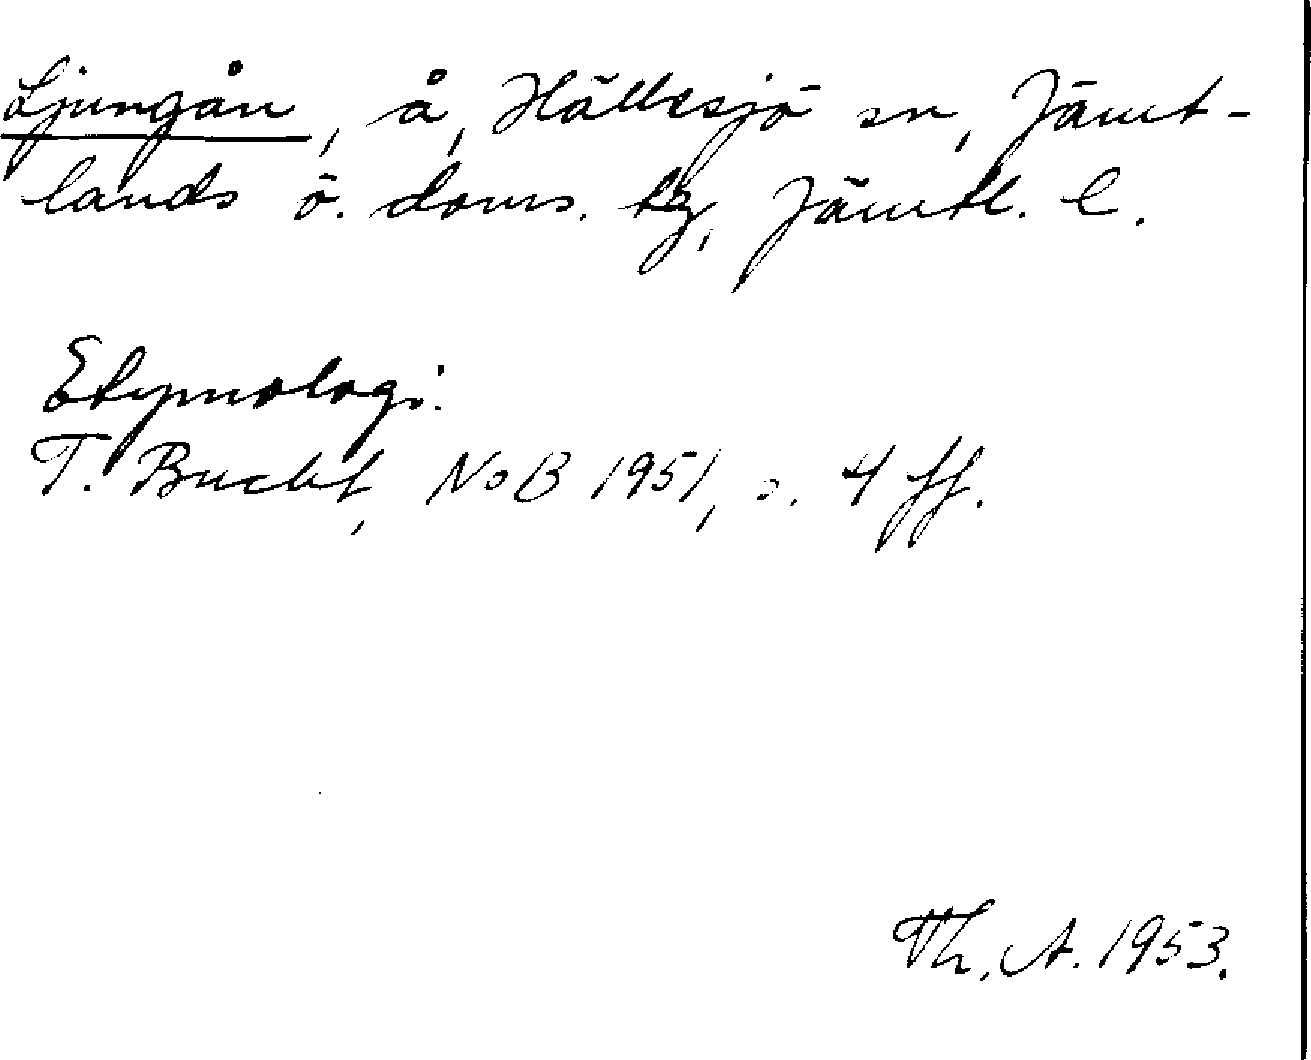 Ljungån, å, Hällesjö sn, Jämt-
lands ö. doms. tg, Jämtl. l.
Etymologi:
T. Bucht, NoB 1951, s. 4 ff.
Th. A. 1953.